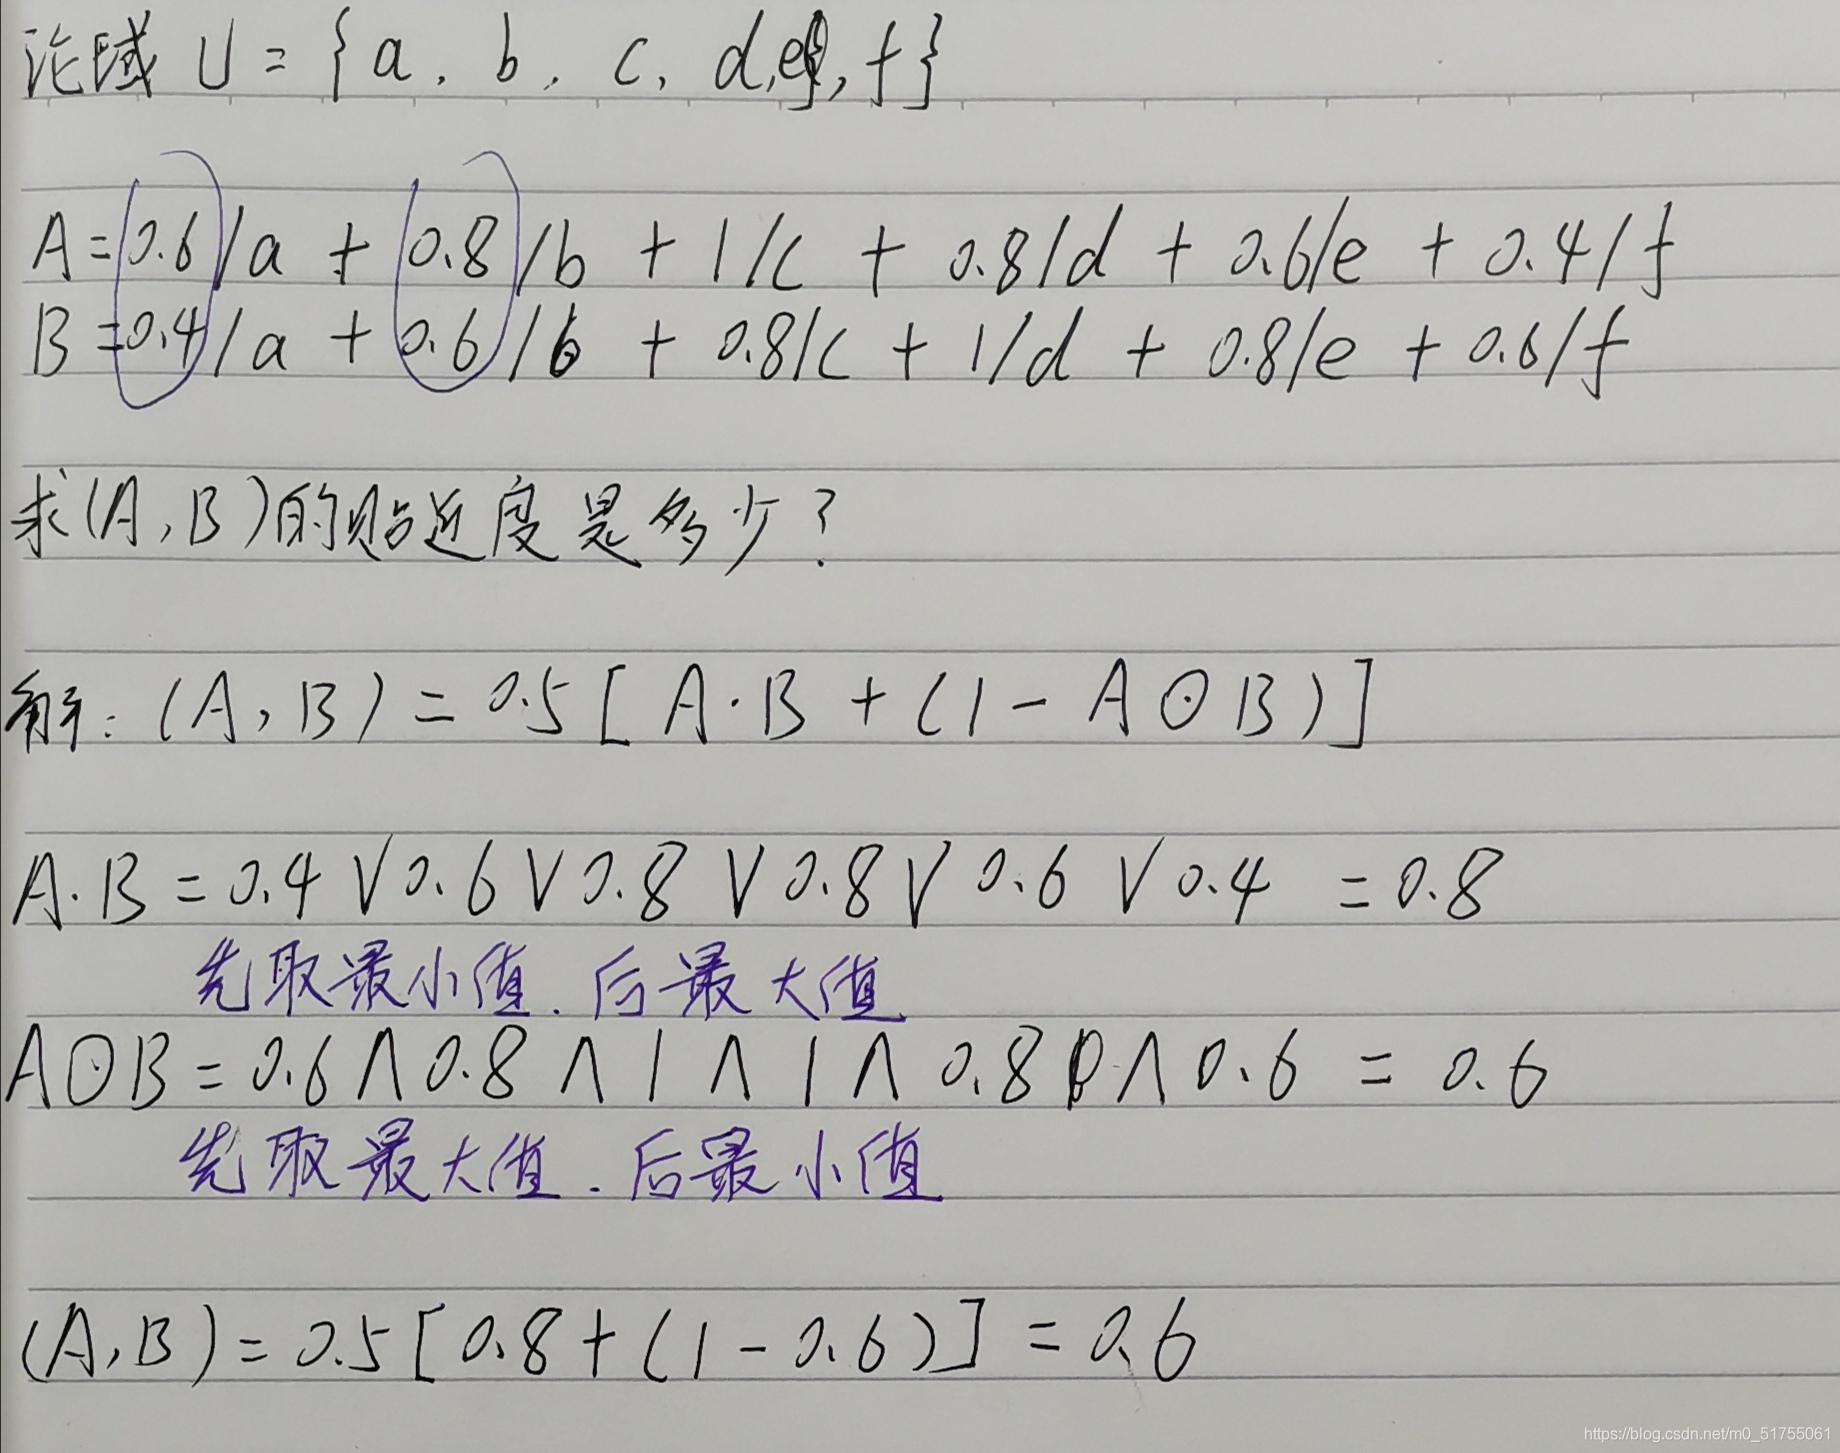 论域 U = {a, b, c, d, e, f}
A = 0.6/a + 0.8/b + 1/c + 0.8/d + 0.6/e + 0.4/f
B = 0.4/a + 0.6/b + 0.8/c + 1/d + 0.8/e + 0.6/f
求(A,B)的贴近度是多少?
解: (A,B) = 0.5[A·B + (1 - A⊙B)]
A·B = 0.4 ∨ 0.6 ∨ 0.8 ∨ 0.8 ∨ 0.6 ∨ 0.4 = 0.8
先取最小值.后最大值
A⊙B = 0.6 ∧ 0.8 ∧ 1 ∧ 1 ∧ 0.8 ∧ 0.6 = 0.6
先取最大值.后最小值
(A,B) = 0.5[0.8 + (1 - 0.6)] = 0.6
https://blog.csdn.net/m0_51755061